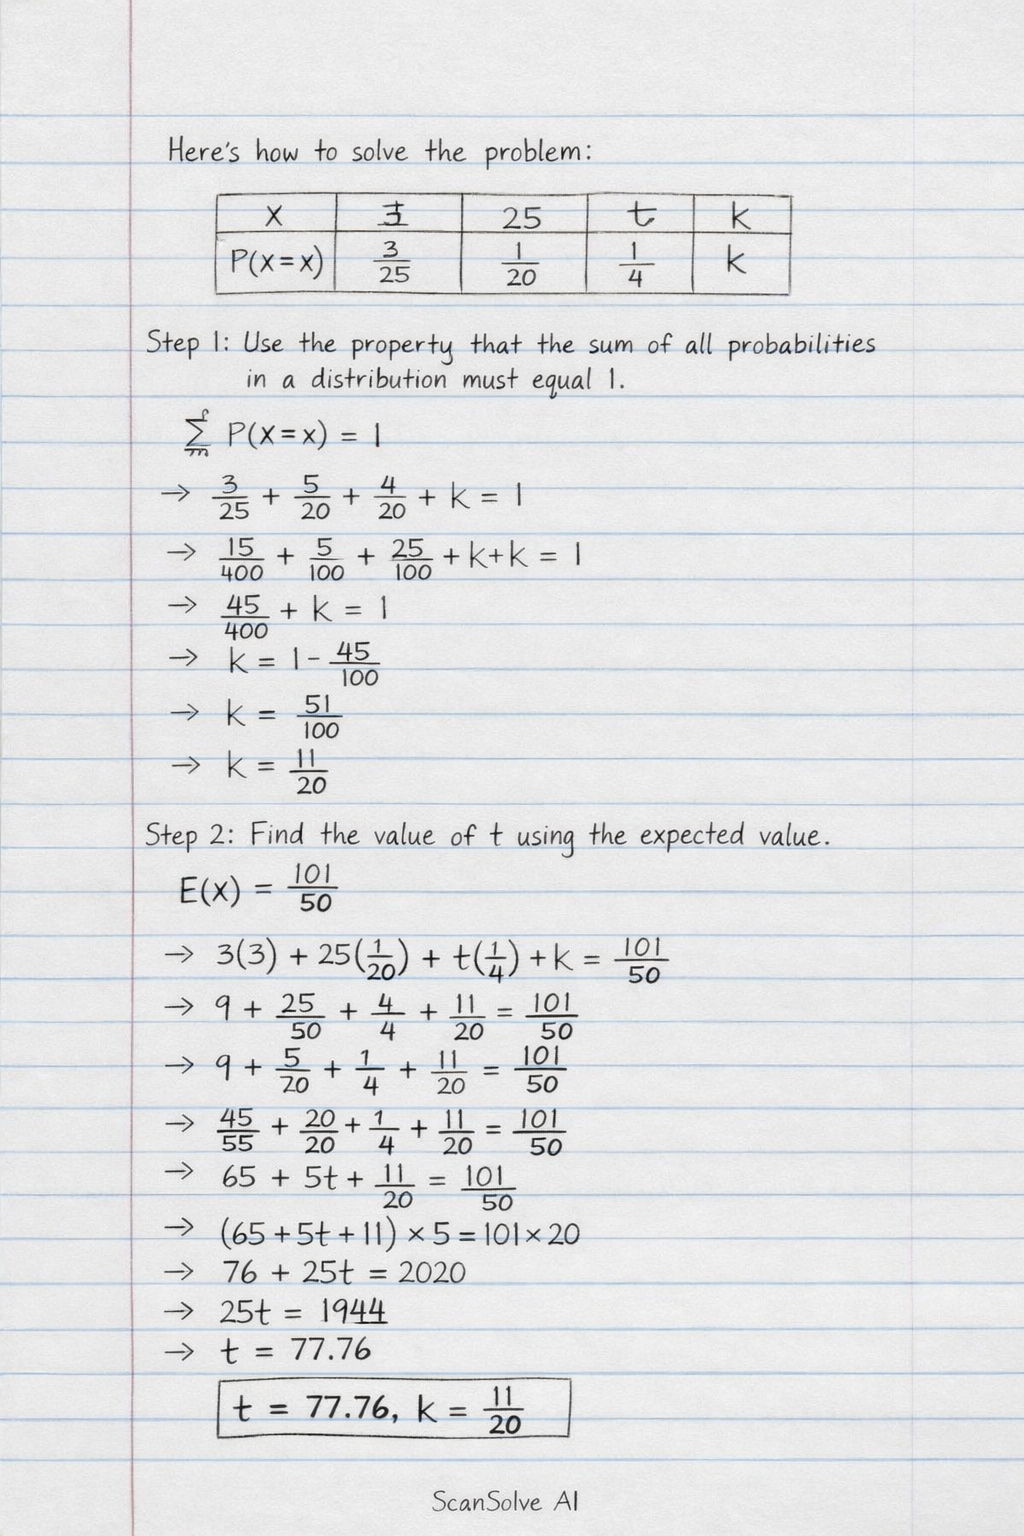 Here's how to solve the problem:
X 3 25 t k
P(x=x) 3/25 1/20 1/4 k
Step 1: Use the property that the sum of all probabilities
in a distribution must equal 1.
∑ P(x=x) = 1
→ 3/25 + 5/20 + 4/20 + k = 1
→ 15/400 + 5/100 + 25/100 + k+k = 1
→ 45/400 + k = 1
→ k = 1 - 45/100
→ k = 51/100
→ k = 11/20
Step 2: Find the value of t using the expected value.
E(x) = 101/50
→ 3(3) + 25(1/20) + t(1/4) + k = 101/50
→ 9 + 25/50 + 4/4 + 11/20 = 101/50
→ 9 + 5/20 + 1/4 + 11/20 = 101/50
→ 45/55 + 20/20 + 1/4 + 11/20 = 101/50
→ 65 + 5t + 11/20 = 101/50
→ (65 + 5t + 11) × 5 = 101 × 20
→ 76 + 25t = 2020
→ 25t = 1944
→ t = 77.76
t = 77.76, k = 11/20
ScanSolve AI